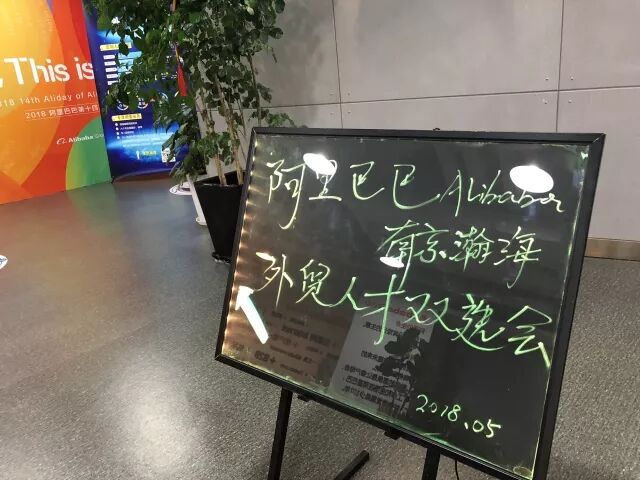 , This is
2018 14th Aliday of Ali
2018 阿里巴巴第十四
Alibaba Gro
阿里巴巴 Alibaba
南京瀚海
外贸人才双选会
2018.05